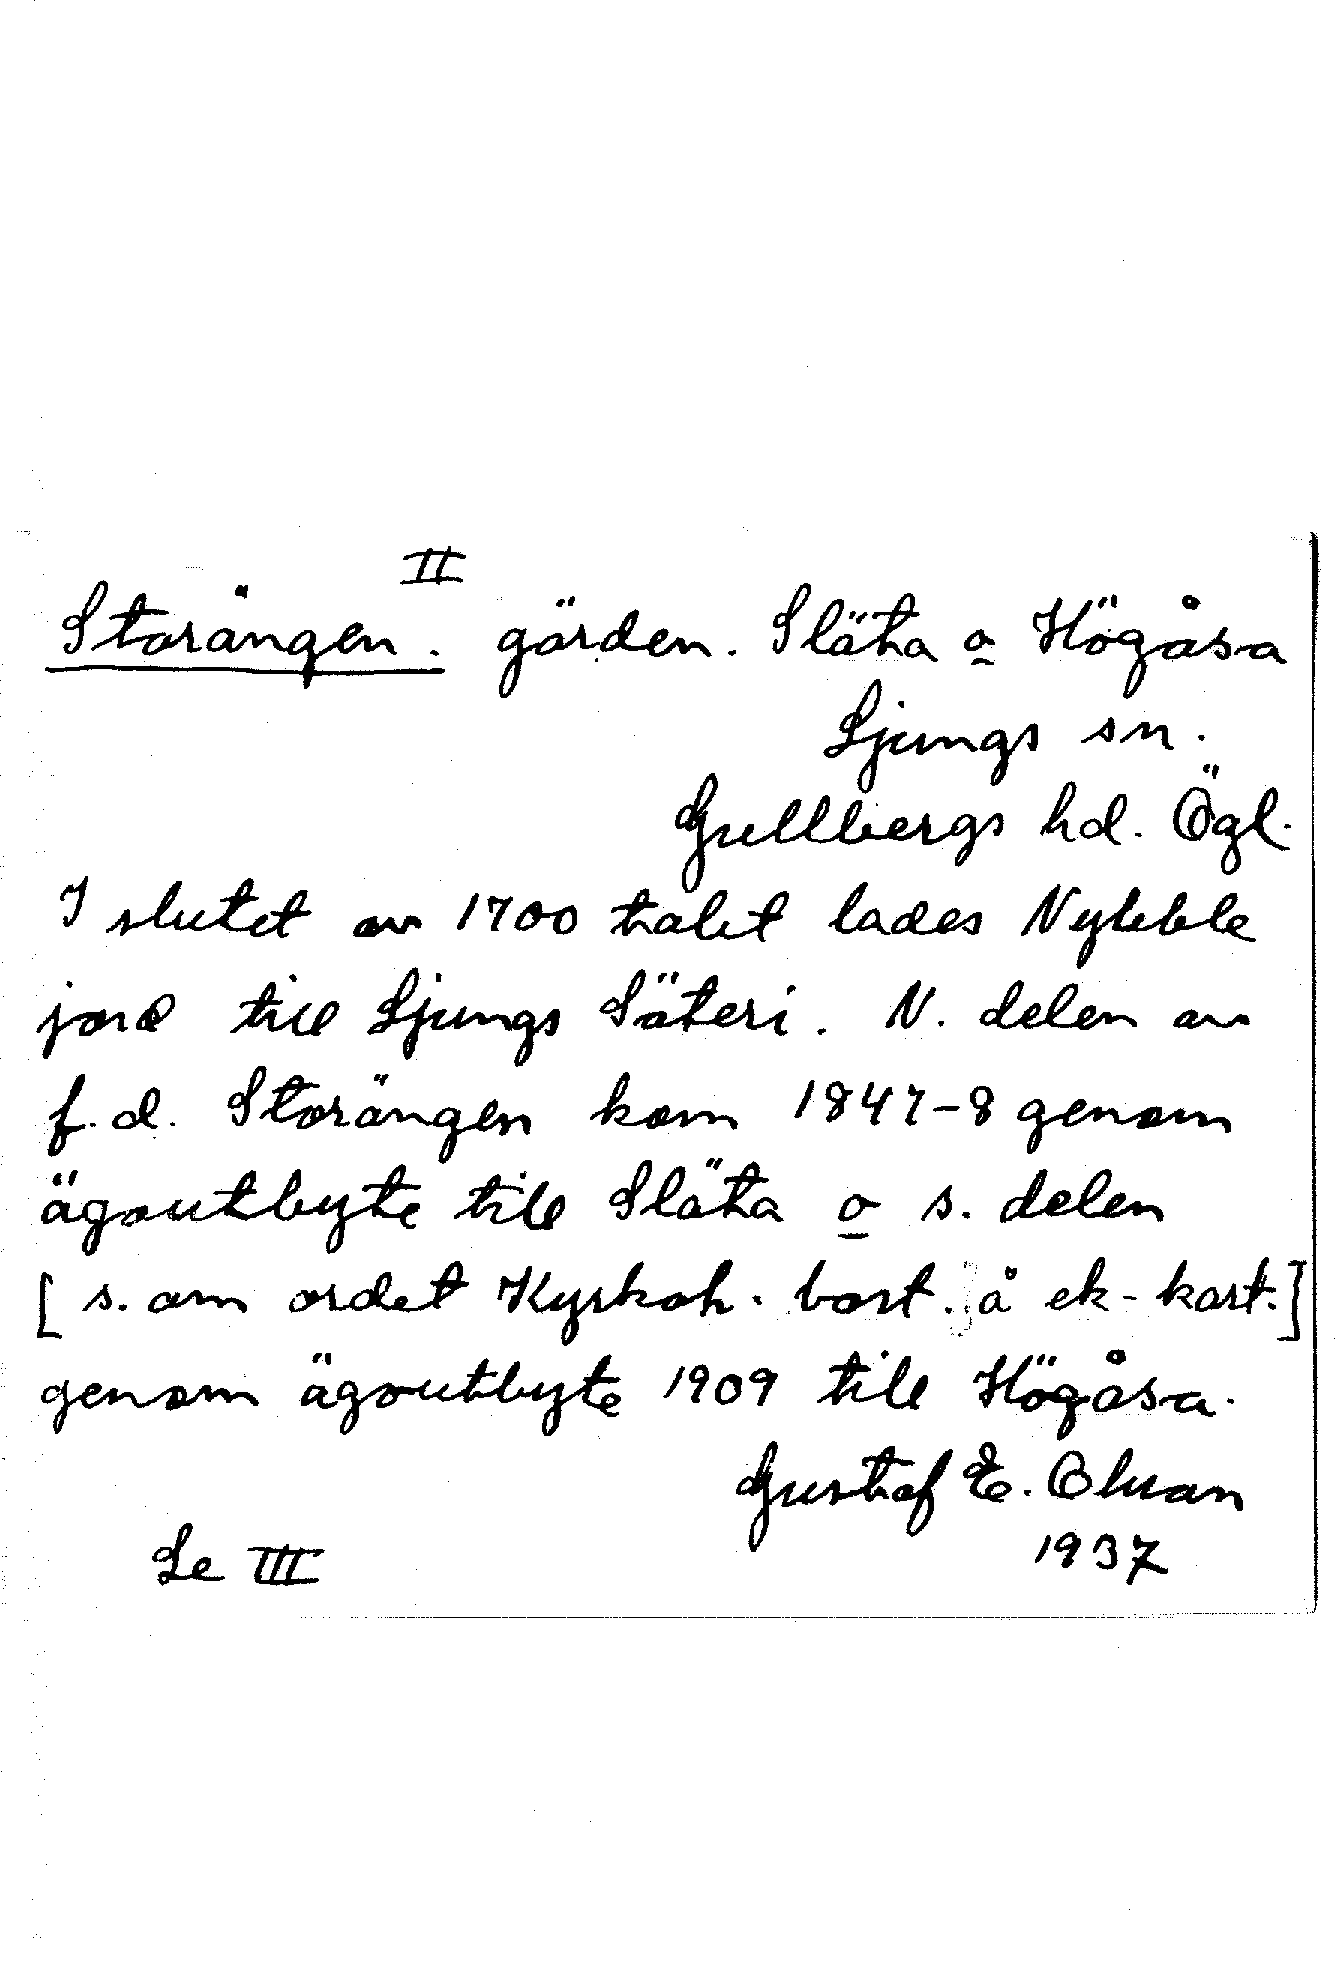 II
Storängen. gärden. Släta o Högåsa
Ljungs sn.
Gullbergs hd. Ögl.
I slutet av 1700 talet lades Nykebble
jord till Ljungs Säteri. N. delen av
f.d. Storängen kom 1847-8 genom
ägoutbyte till Släta o s. delen
[s. om ordet Kyrkoh. bost. å ek-kart.]
genom ägoutbyte 1909 till Högåsa.
Gustaf E.
Se III 1937